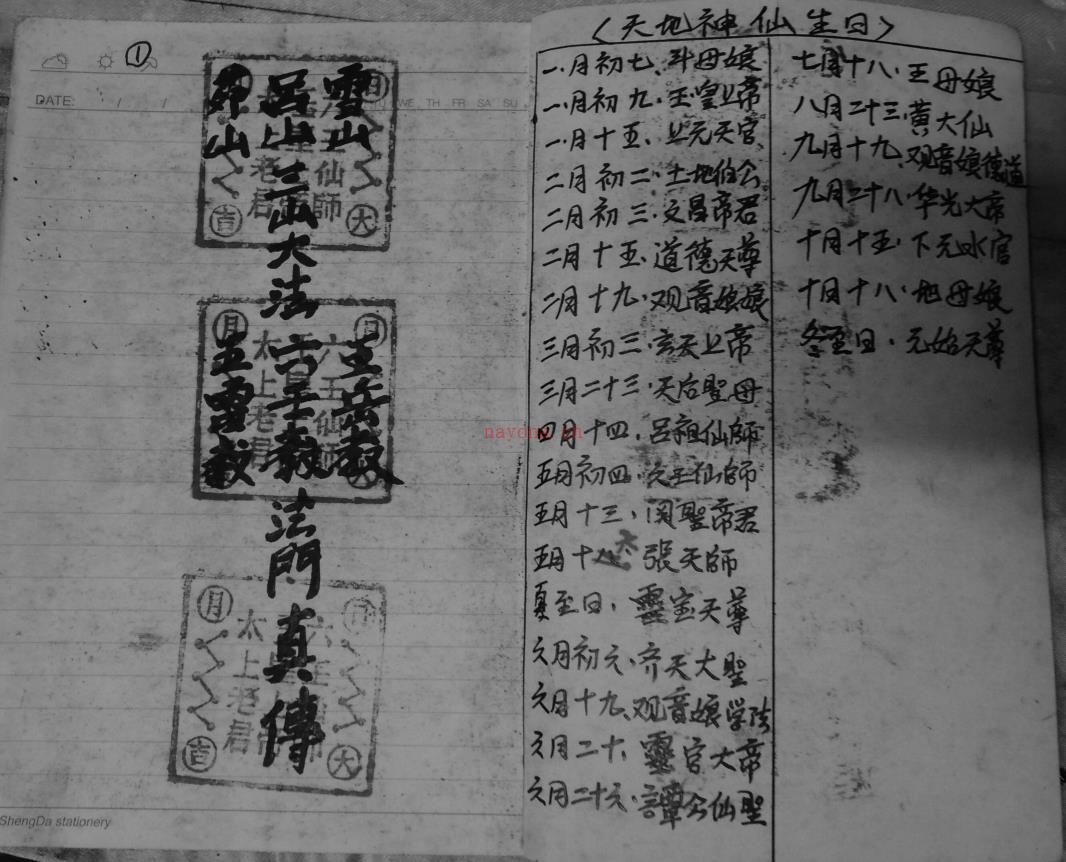 ①
DATE: / /
TU WE TH FR SA SU
雪山
呂山三山大法 六壬教法門真傳
茆山
王岳教
五雷教
日 月 吉 大
六壬仙師
太上老君
月 日
六壬仙師
太上老君
月 日
太上老君
吉 大
ShengDa stationery
〈天地神仙生日〉
一月初七、斗母娘
一月初九·玉皇上帝
一月十五、上元天官
二月初二·土地伯公
二月初三·文昌帝君
二月十五·道德天尊
二月十九·观音娘娘
三月初三·玄天上帝
三月二十三·天后聖母
四月十四·呂祖仙師
五月初四·六壬仙師
五月十三、関聖帝君
五月十八 張天師
夏至日、靈宝天尊
六月初六·齐天大聖
六月十九、观音娘学法
六月二十、靈官大帝
六月二十六·譚公仙聖
七月十八·王母娘
八月二十三·黄大仙
九月十九、观音娘德道
九月二十八·华光大帝
十月十五·下元水官
十月十八·地母娘
冬至日·元始天尊
nayona.cn